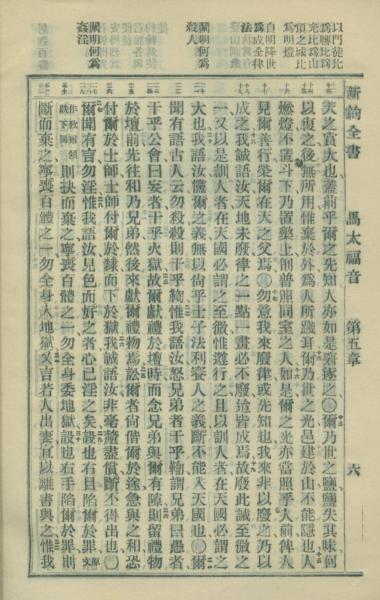 新約全書 馬太福音 第五章 六
以門徒比
爲鹽比爲
光比爲山
頂之城比
爲明燈
自明降世
爲成全律
法
闡明何爲
殺人
闡明何爲
姦淫
天之賞大也蓋前乎爾之先知人亦如是窘逐之〇爾乃世之鹽鹽失其味何
以復之後無所用惟棄於外爲人所踐耳爾乃世之光邑建於山不能隱也人
燃燈不置斗下乃置檠上則普照同室之人如是爾之光亦當照乎人前俾人
見爾善行榮爾在天之父焉〇勿意我來廢律或先知也我來非以廢之乃以
成之我誠語汝天地未廢律之一點一畫必不廢迨皆成焉故廢此誡至微之
一又以是訓人者在天國必謂之至微惟遵行之且以訓人者在天國必謂之
大也我語汝儻爾之義無以尙乎士子法利賽人之義斷不能入天國也〇爾
聞有語古人云勿殺殺則干乎鞫惟我語汝怒兄弟者干乎鞫謂兄弟曰愚者
干乎公會曰妄者干乎火獄故爾獻禮於壇時而念兄弟與爾有隙則留禮物
於壇前先往和乃兄弟然後來獻爾禮物焉訟爾者尙偕爾於途急與之和恐
付爾於士師士師付爾於隸而下於獄我誠語汝非毫釐盡償斷不得出也〇
爾聞有言勿淫惟我語汝見色而好之者心已淫之矣設也右目陷爾於罪原文
則抉而棄之寧喪百體之一勿全身委地獄設也右手陷爾於罪則
斷而棄之寧喪百體之一勿全身入地獄又言若人出妻宜以離書與之惟我